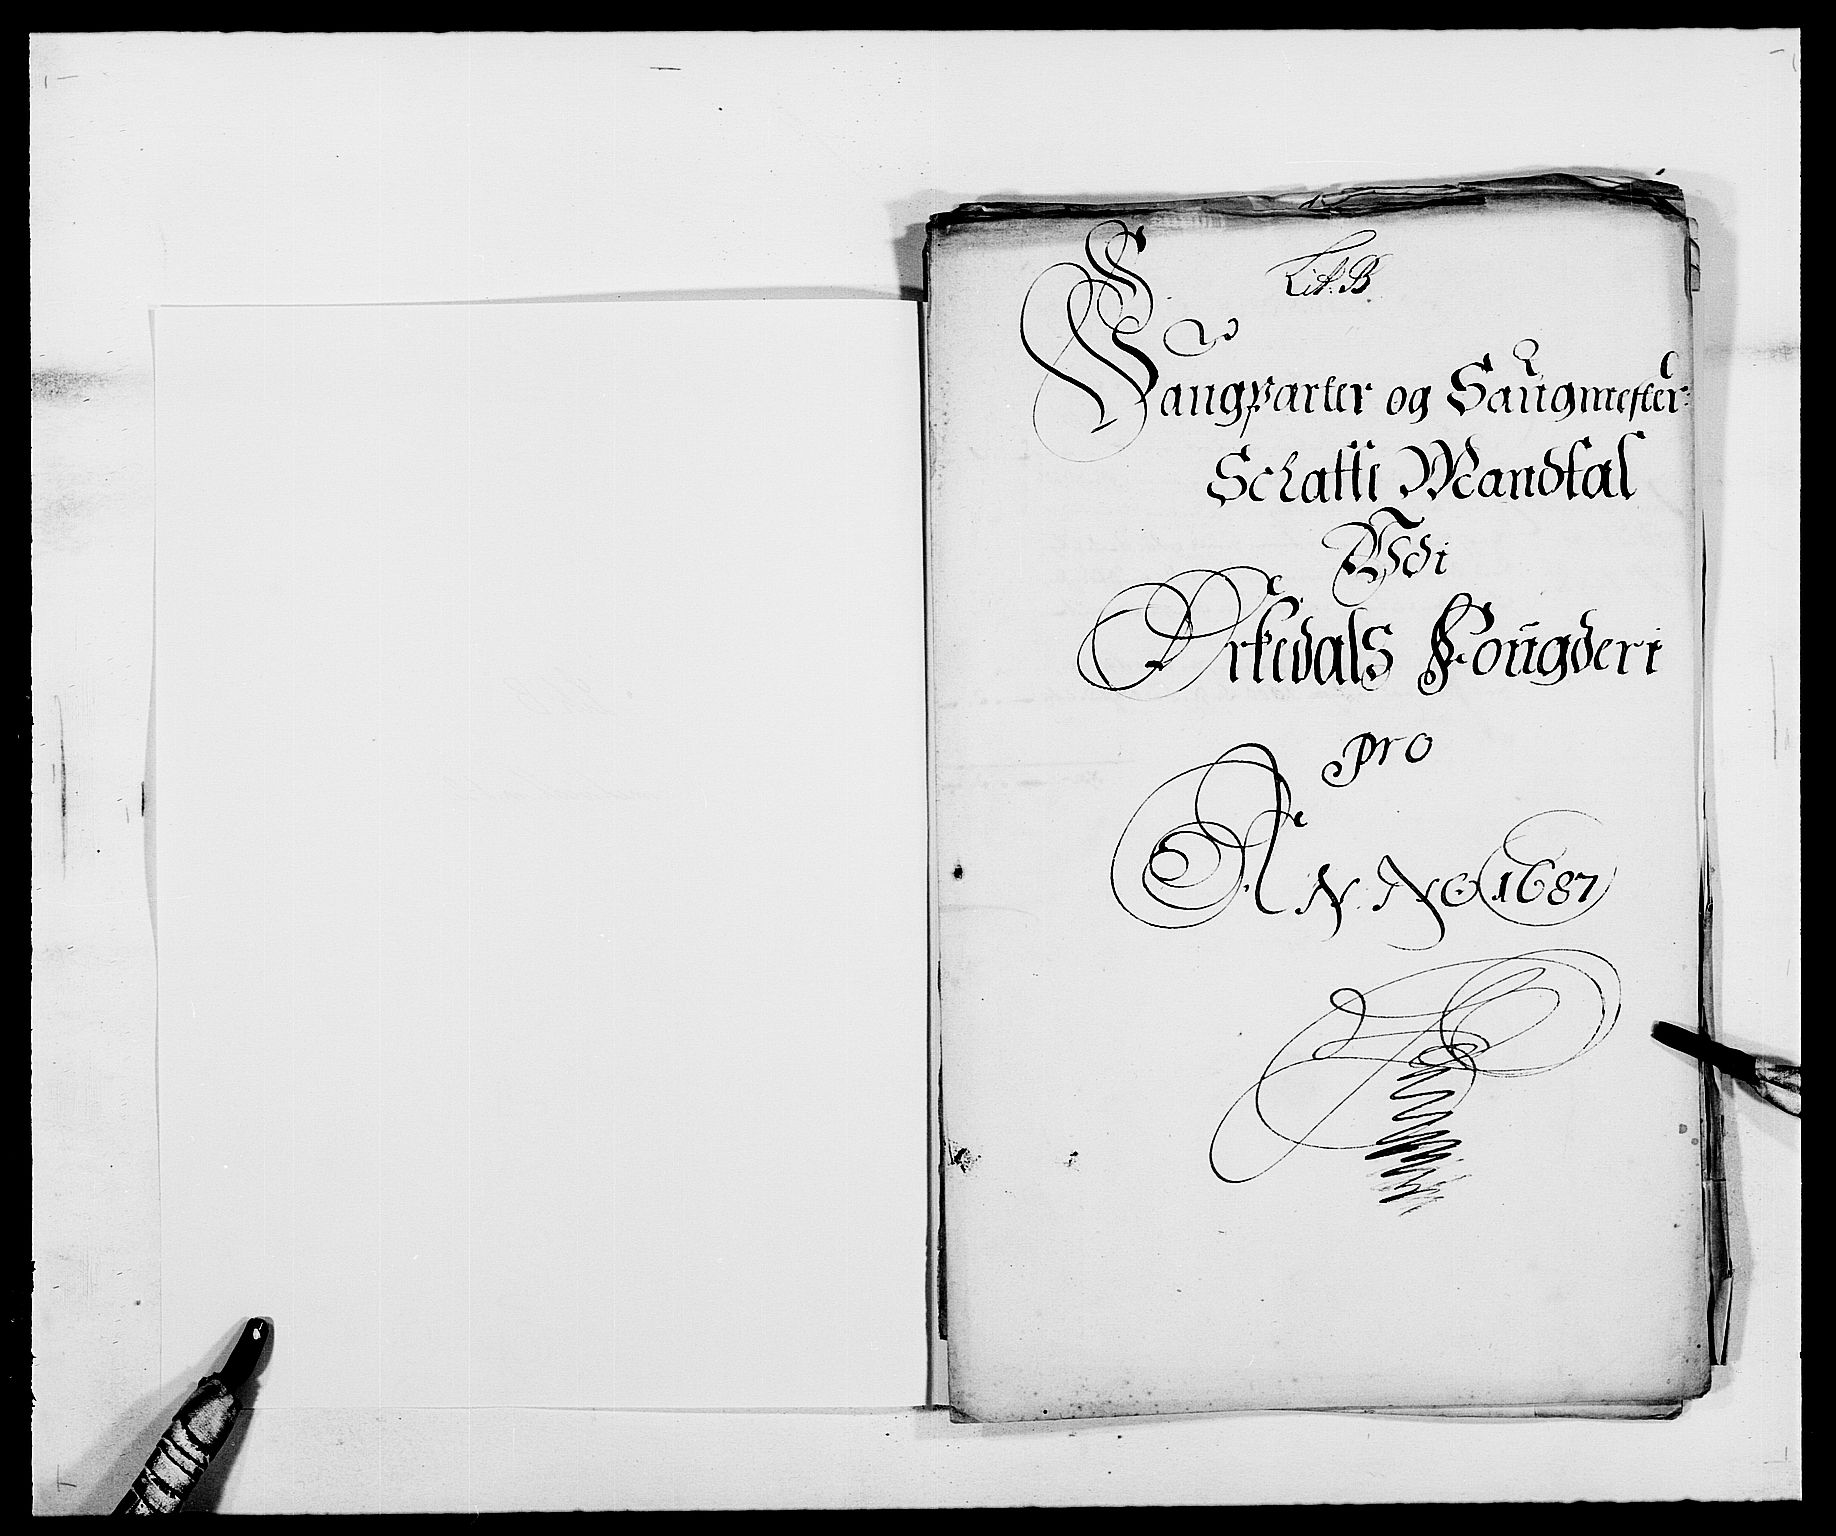 Lit. B.
Saugparter og Saugmester-
Schatte Mandtal
Udi
Orkedals Fougderi
pro
ANNO 1687